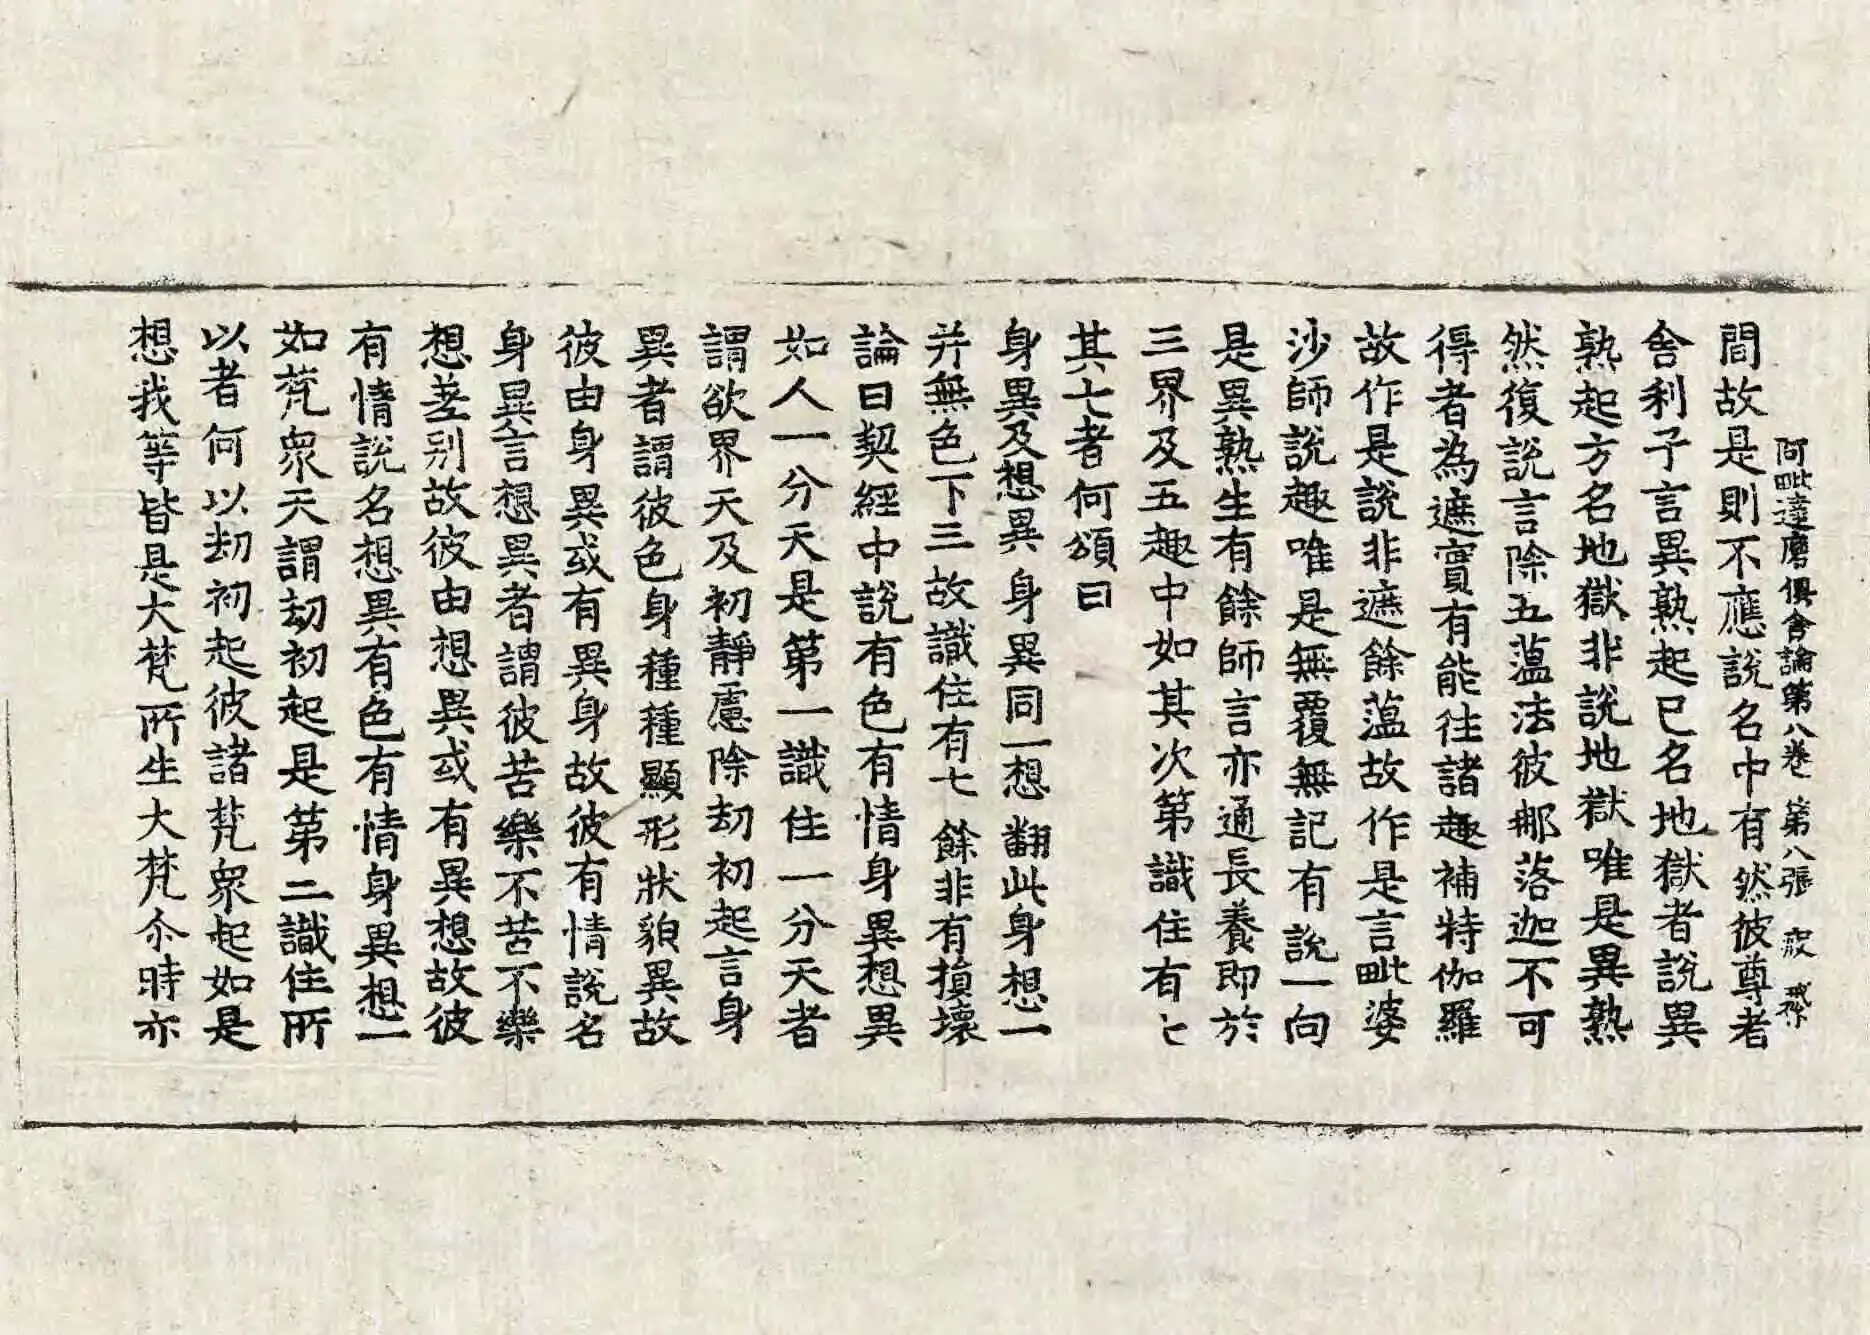 阿毗達磨俱舍論第八卷 第八張
間故是則不應說名中有然彼尊者
舍利子言異熟起已名地獄者說異
熟起方名地獄非說地獄唯是異熟
然復說言除五薀法彼那落迦不可
得者為遮實有能往諸趣補特伽羅
故作是說非遮餘薀故作是言毗婆
沙師說趣唯是無覆無記有說一向
是異熟生有餘師言亦通長養即於
三界及五趣中如其次第識住有七
其七者何頌曰
身異及想異 身異同一想 翻此身想一
并無色下三 故識住有七 餘非有損壞
論曰契經中說有色有情身異想異
如人一分天是第一識住一分天者
謂欲界天及初靜慮除劫初起言身
異者謂彼色身種種顯形狀貌異故
彼由身異或有異身故彼有情說名
身異言想異者謂彼苦樂不苦不樂
想差别故彼由想異或有異想故彼
有情說名想異有色有情身異想一
如梵眾天謂劫初起是第二識住所
以者何以劫初起彼諸梵眾起如是
想我等皆是大梵所生大梵尒時亦